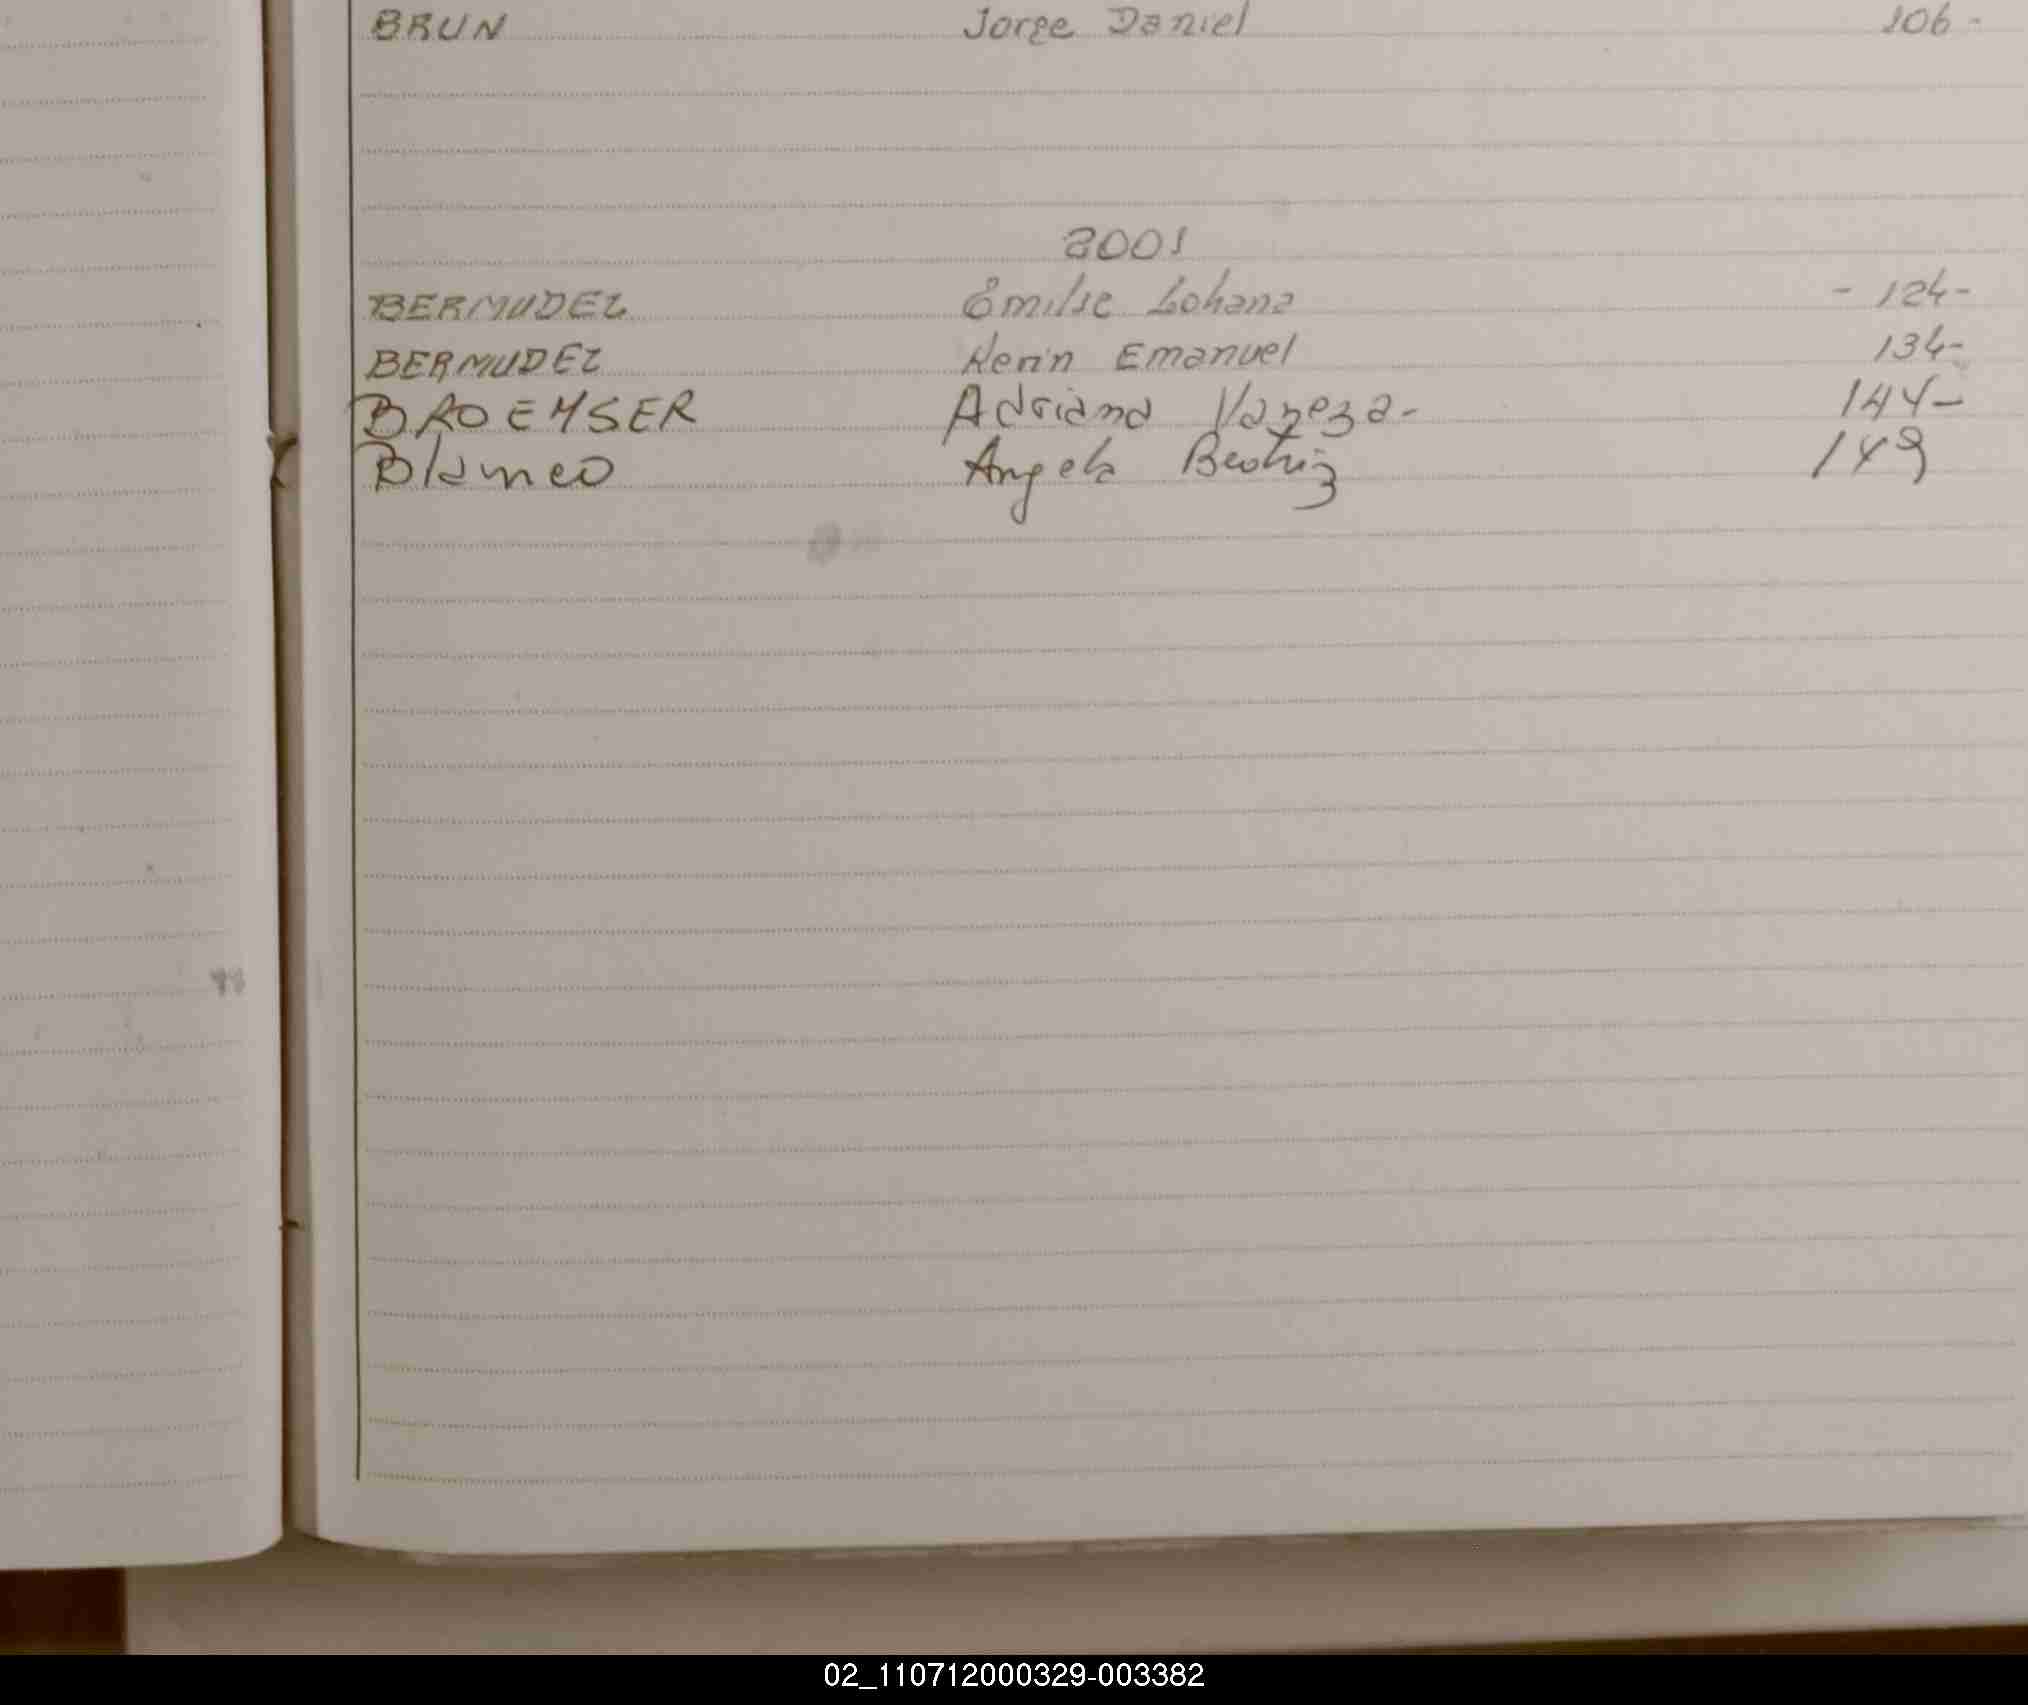 BRUN Jorge Daniel 106-
2001
BERMUDEZ Emilse Lohana - 124-
BERMUDEZ Kevin Emanuel 134-
BROEMSER Adriana Vaneza- 144-
Blanco Angela Beatriz 149
02_110712000329-003382